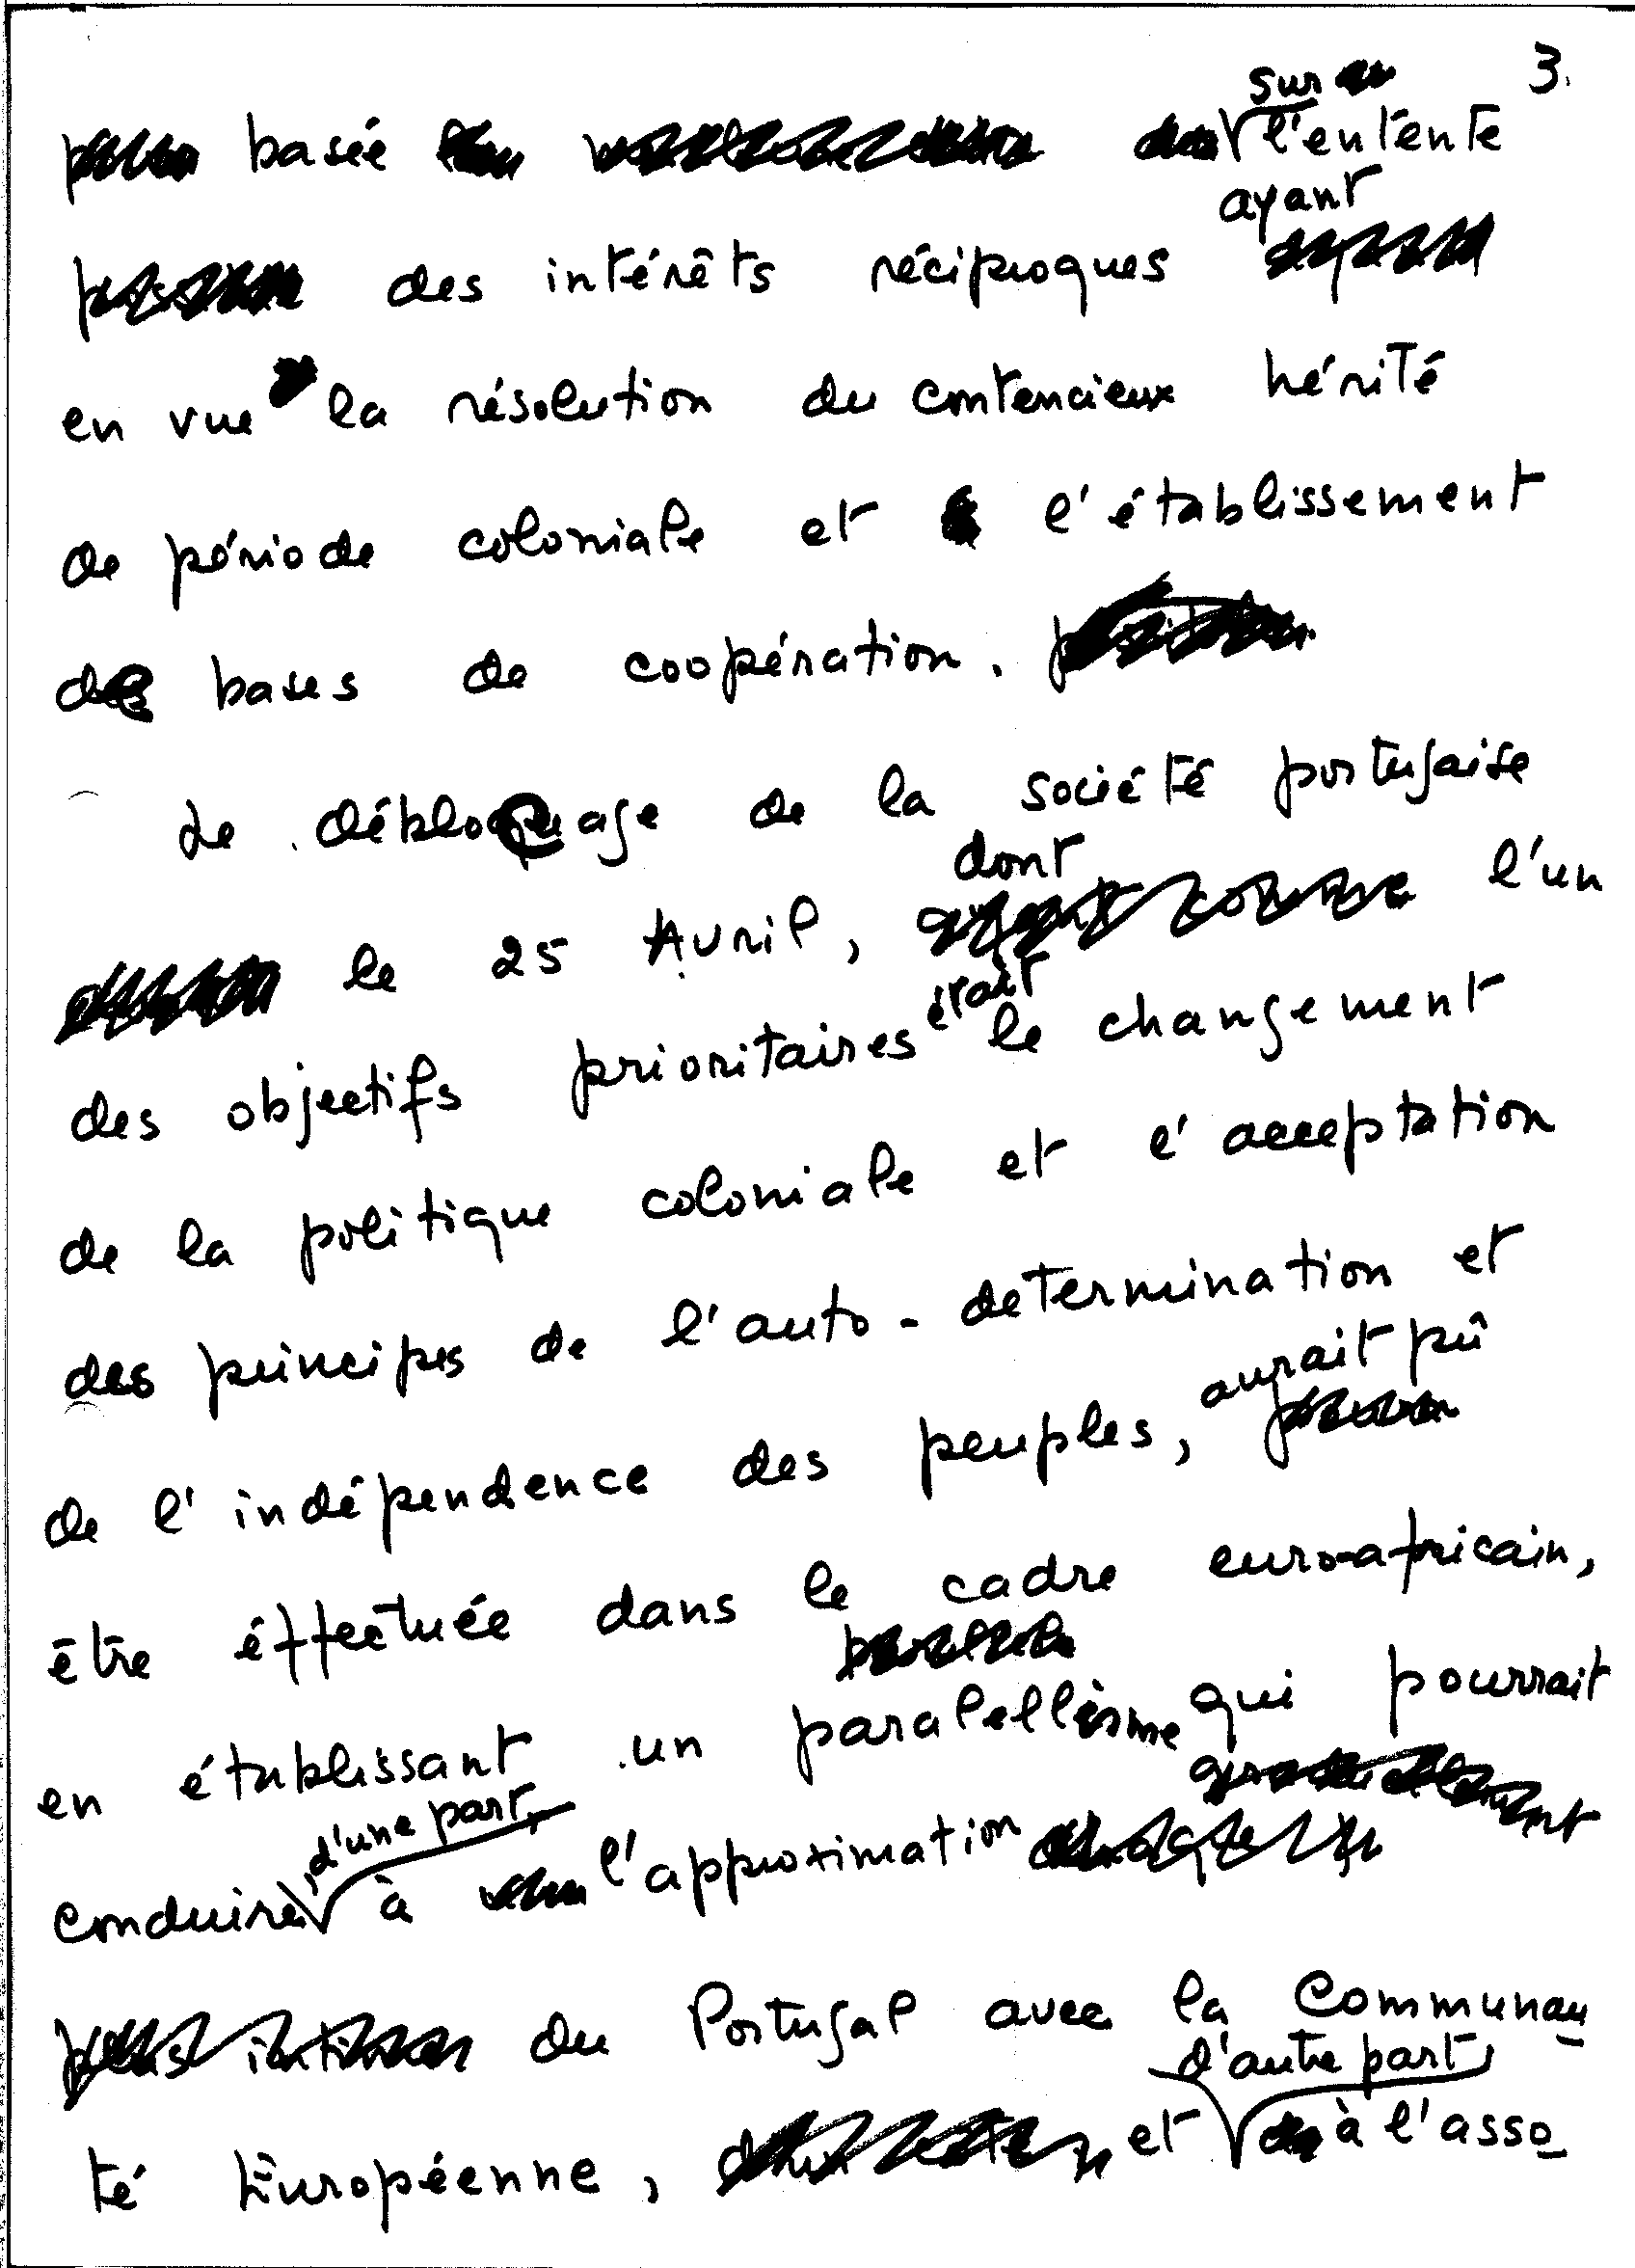 3.
sur
basée l'entente
ayant
des intérêts réciproques
en vue la résolution du contencieux hérité
de période coloniale et l'établissement
des bases de coopération.
Le déblocage de la société portugaise
dont
le 25 Avril, l'un
des objectifs prioritaires était le changement
de la politique coloniale et l'acceptation
des principes de l'auto-determination et
aurait pû
de l'indépendence des peuples,
être éffectuée dans le cadre euro-africain,
en établissant un paralellisme qui pourrait
d'une part,
conduire, à l'approximation
du Portugal avec la Communau
d'autre part,
té Européenne, et à l'asso_